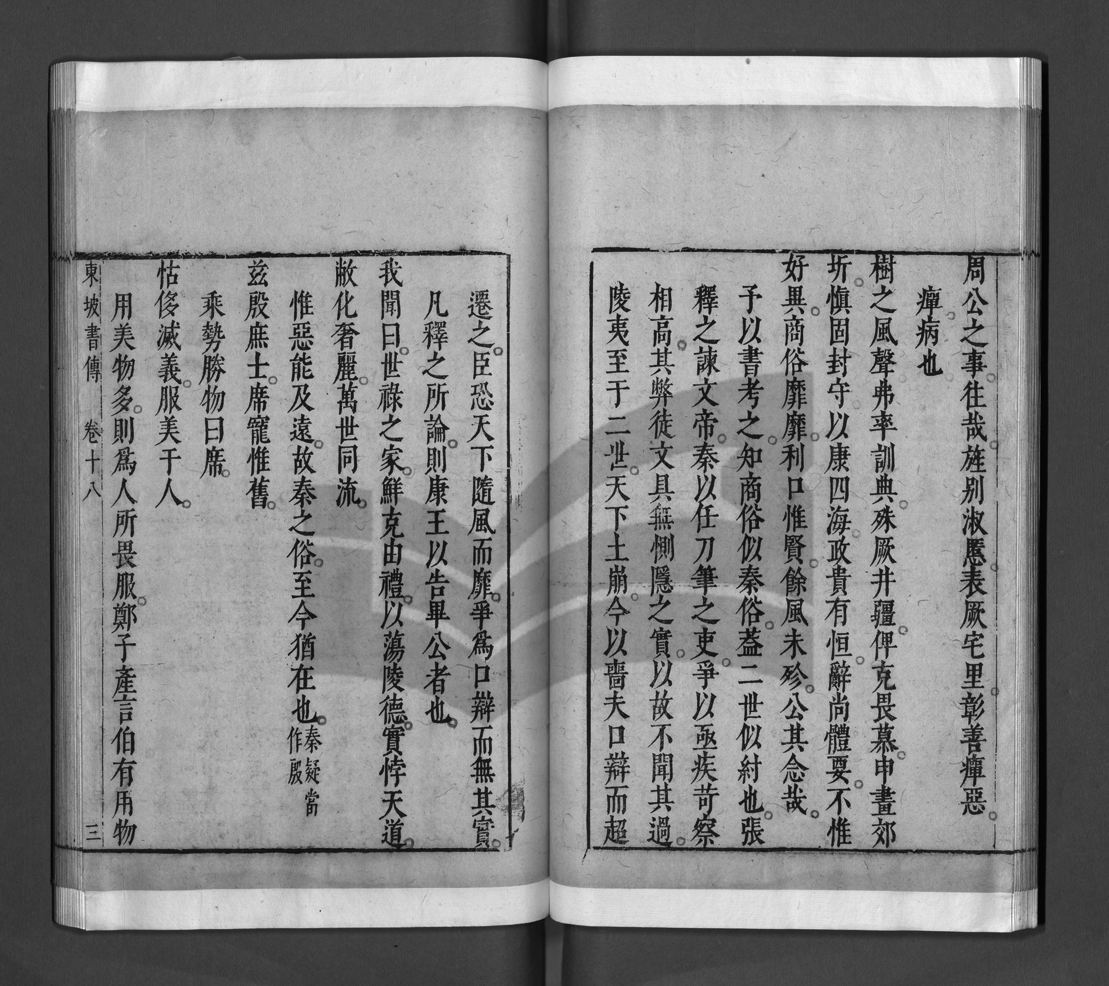 周公之事往哉旌别淑慝表厥宅里彰善癉惡
癉病也
樹之風聲弗率訓典殊厥井疆俾克畏慕申畫郊
圻慎固封守以康四海政貴有恒辭尚體要不惟
好異商俗靡靡利口惟賢餘風未殄公其念哉
予以書考之知商俗似秦俗葢二世似紂也張
釋之諫文帝秦以任刀筆之吏爭以亟疾苛察
相高其弊徒文具無惻隱之實以故不聞其過
陵夷至于二世天下土崩今以嗇夫口辯而超
遷之臣恐天下隨風而靡爭爲口辯而無其實
凡釋之所論則康王以告畢公者也
我聞曰世祿之家鮮克由禮以蕩陵德實悖天道
敝化奢麗萬世同流
惟惡能及遠故秦之俗至今猶在也秦疑當作殷
茲殷庶士席寵惟舊
乘勢勝物曰席
怙侈滅義服美于人
用美物多則爲人所畏服鄭子產言伯有用物
東坡書傳 卷十八 三